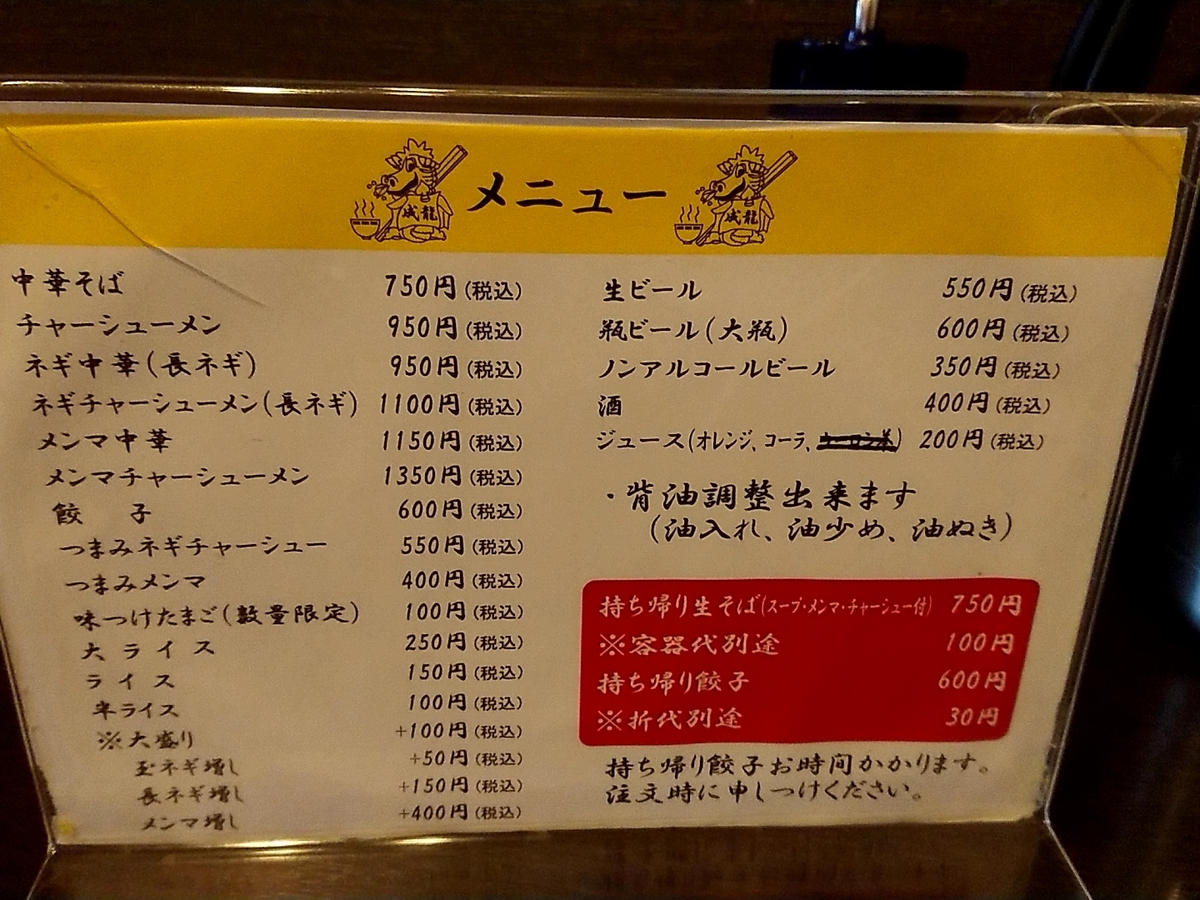 成龍 メニュー 成龍
中華そば 750円(税込)
チャーシューメン 950円(税込)
ネギ中華(長ネギ) 950円(税込)
ネギチャーシューメン(長ネギ) 1100円(税込)
メンマ中華 1150円(税込)
メンマチャーシューメン 1350円(税込)
餃子 600円(税込)
つまみネギチャーシュー 550円(税込)
つまみメンマ 400円(税込)
味つけたまご(数量限定) 100円(税込)
大ライス 250円(税込)
ライス 150円(税込)
半ライス 100円(税込)
※大盛り +100円(税込)
玉ネギ増し +50円(税込)
長ネギ増し +150円(税込)
メンマ増し +400円(税込)
生ビール 550円(税込)
瓶ビール(大瓶) 600円(税込)
ノンアルコールビール 350円(税込)
酒 400円(税込)
ジュース(オレンジ、コーラ、ウーロン茶) 200円(税込)
・背油調整出来ます
(油入れ、油少め、油ぬき)
持ち帰り生そば(スープ・メンマ・チャーシュー付) 750円
※容器代別途 100円
持ち帰り餃子 600円
※折代別途 30円
持ち帰り餃子お時間かかります。
注文時に申しつけください。